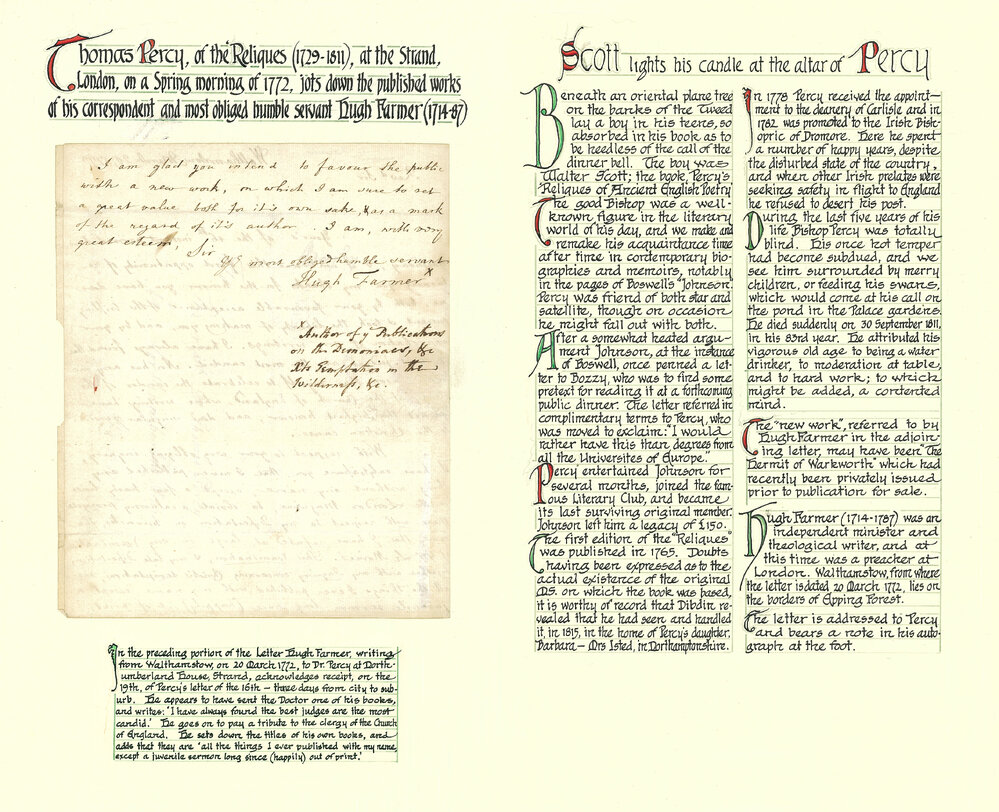 Thomas Percy, of the Reliques (1729-1811), at the Strand,
London, on a Spring morning of 1772, jots down the published works
of his correspondent and most obliged humble servant Hugh Farmer (1714-87)
I am glad you intend to favour the public
with a new work, on which I am sure to set
a great value both for it's own sake, & as a mark
of the regard of it's author. I am, with very
great esteem,
Sir
Yr. most obliged humble servant
Hugh Farmer x
x Author of ye Publications
on the Demoniacs, &c
Temptation in the
Wilderness, &c.
In the preceding portion of the Letter Hugh Farmer, writing
from Walthamstow, on 20 March 1772, to Dr. Percy at North-
umberland House, Strand, acknowledges receipt, on the
19th, of Percy's letter of the 16th — three days from city to sub-
urb. He appears to have sent the Doctor one of his books,
and writes: 'I have always found the best judges are the most
candid.' He goes on to pay a tribute to the clergy of the Church
of England. He sets down the titles of his own books, and
adds that they are 'all the things I ever published with my name,
except a juvenile sermon long since (happily) out of print.'
Scott lights his candle at the altar of Percy
Beneath an oriental plane tree
on the banks of the Tweed
lay a boy in his teens, so
absorbed in his book as to
be heedless of the call of the
dinner bell. The boy was
Walter Scott; the book, Percy's
Reliques of Ancient English Poetry
The good Bishop was a well-
known figure in the literary
world of his day, and we make and
remake his acquaintance time
after time in contemporary bio-
graphies and memoirs, notably
in the pages of Boswell's "Johnson."
Percy was friend of both star and
satellite, though on occasion
he might fall out with both.
After a somewhat heated argu-
ment Johnson, at the instance
of Boswell, once penned a let-
ter to Bozzy, who was to find some
pretext for reading it at a forthcoming
public dinner. The letter referred in
complimentary terms to Percy, who
was moved to exclaim: "I would
rather have this than degrees from
all the Universites of Europe."
Percy entertained Johnson for
several months, joined the fam-
ous Literary Club, and became
its last surviving original member.
Johnson left him a legacy of £150.
The first edition of the "Reliques"
was published in 1765. Doubts
having been expressed as to the
actual existence of the original
MS. on which the book was based,
it is worthy of record that Dibdin re-
vealed that he had seen and handled
it, in 1815, in the home of Percy's daughter,
Barbara — Mrs Isted, in Northamptonshire.
In 1778 Percy received the appoint-
ment to the deanery of Carlisle and in
1782 was promoted to the Irish Bish-
opric of Dromore. Here he spent
a number of happy years, despite
the disturbed state of the country,
and when other Irish prelates were
seeking safety in flight to England
he refused to desert his post.
During the last five years of his
life Bishop Percy was totally
blind. His once hot temper
had become subdued, and we
see him surrounded by merry
children, or feeding his swans,
which would come at his call on
the pond in the Palace gardens.
He died suddenly on 30 September 1811,
in his 83rd year. He attributed his
vigorous old age to being a water
drinker, to moderation at table,
and to hard work; to which
might be added, a contented
mind.
The "new work", referred to by
Hugh Farmer in the adjoin-
ing letter, may have been "The
Hermit of Warkworth" which had
recently been privately issued
prior to publication for sale.
Hugh Farmer (1714-1787) was an
independent minister and
theological writer, and at
this time was a preacher at
London. Walthamstow, from where
the letter is dated 20 March 1772, lies on
the borders of Epping Forest.
The letter is addressed to Percy
and bears a note in his auto-
graph at the foot.